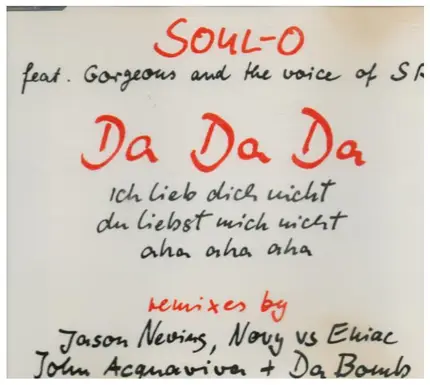 SOUL-O
feat. Gorgeous and the voice of SR
Da Da Da
ich lieb dich nicht
du liebst mich nicht
aha aha aha
remixes by
Jason Nevins, Novy vs Eniac
John Acquaviva + Da Bomb